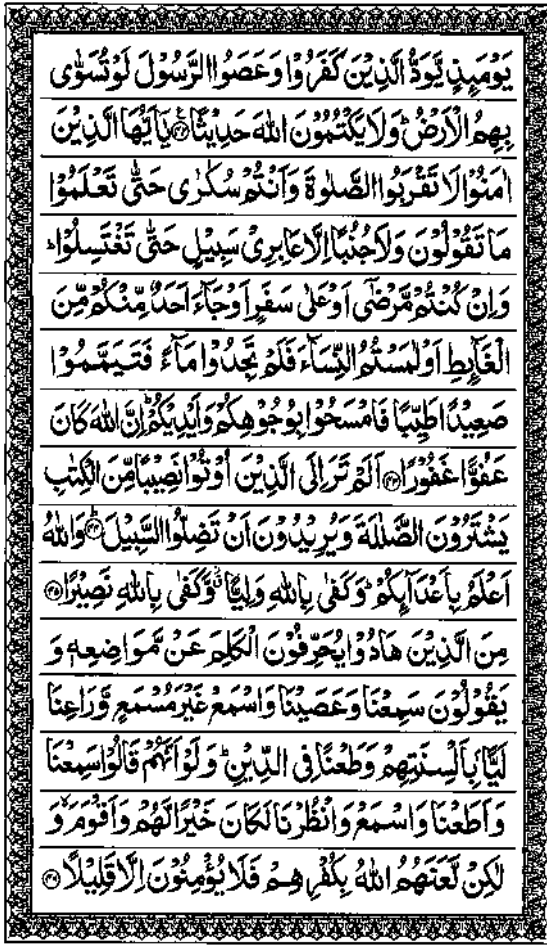 يَوْمَىِٕذٍ يَّوَدُّ الَّذِيْنَ كَفَرُوْا وَعَصَوُا الرَّسُوْلَ لَوْ تُسَوّٰى
بِهِمُ الْاَرْضُ ؕ وَلَا يَكْتُمُوْنَ اللّٰهَ حَدِيْثًا ﴿۴۲﴾ يٰۤاَيُّهَا الَّذِيْنَ
اٰمَنُوْا لَا تَقْرَبُوا الصَّلٰوةَ وَاَنْتُمْ سُكٰرٰى حَتّٰى تَعْلَمُوْا
مَا تَقُوْلُوْنَ وَلَا جُنُبًا اِلَّا عَابِرِيْ سَبِيْلٍ حَتّٰى تَغْتَسِلُوْا ؕ
وَاِنْ كُنْتُمْ مَّرْضٰۤى اَوْ عَلٰى سَفَرٍ اَوْ جَآءَ اَحَدٌ مِّنْكُمْ مِّنَ
الْغَآىِٕطِ اَوْ لٰمَسْتُمُ النِّسَآءَ فَلَمْ تَجِدُوْا مَآءً فَتَيَمَّمُوْا
صَعِيْدًا طَيِّبًا فَامْسَحُوْا بِوُجُوْهِكُمْ وَاَيْدِيْكُمْ ؕ اِنَّ اللّٰهَ كَانَ
عَفُوًّا غَفُوْرًا ﴿۴۳﴾ اَلَمْ تَرَ اِلَى الَّذِيْنَ اُوْتُوْا نَصِيْبًا مِّنَ الْكِتٰبِ
يَشْتَرُوْنَ الضَّلٰلَةَ وَيُرِيْدُوْنَ اَنْ تَضِلُّوا السَّبِيْلَ ؕ ﴿۴۴﴾ وَاللّٰهُ
اَعْلَمُ بِاَعْدَآىِٕكُمْ ؕ وَكَفٰى بِاللّٰهِ وَلِيًّا ۙ وَّكَفٰى بِاللّٰهِ نَصِيْرًا ﴿۴۵﴾
مِنَ الَّذِيْنَ هَادُوْا يُحَرِّفُوْنَ الْكَلِمَ عَنْ مَّوَاضِعِهٖ وَ
يَقُوْلُوْنَ سَمِعْنَا وَعَصَيْنَا وَاسْمَعْ غَيْرَ مُسْمَعٍ وَّرَاعِنَا
لَيًّۢا بِاَلْسِنَتِهِمْ وَطَعْنًا فِى الدِّيْنِ ؕ وَلَوْ اَنَّهُمْ قَالُوْا سَمِعْنَا
وَاَطَعْنَا وَاسْمَعْ وَانْظُرْنَا لَكَانَ خَيْرًا لَّهُمْ وَاَقْوَمَ ۙ وَ
لٰكِنْ لَّعَنَهُمُ اللّٰهُ بِكُفْرِهِمْ فَلَا يُؤْمِنُوْنَ اِلَّا قَلِيْلًا ﴿۴۶﴾